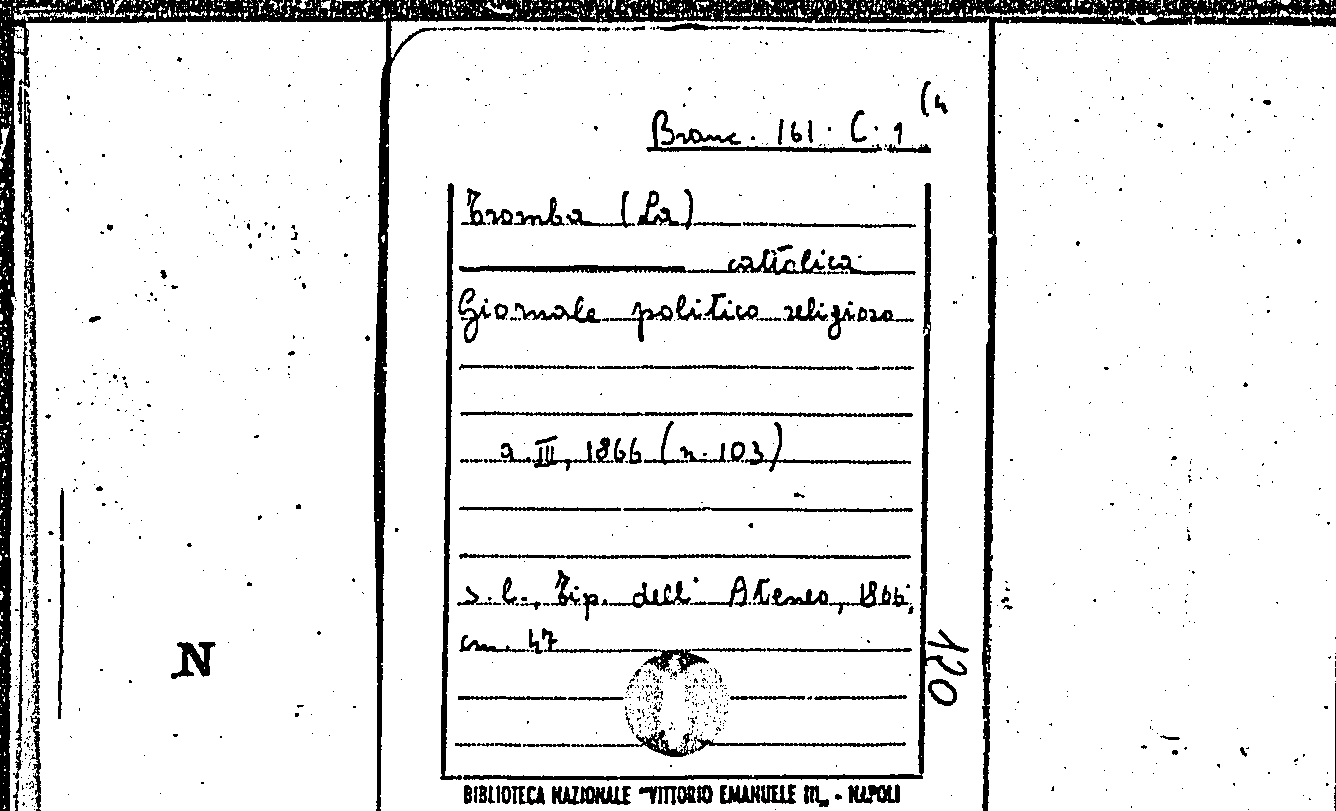 Branc. 161. C. 1 (4
Tromba (La)
cattolica
Giornale politico religioso
a. III, 1866 (n. 103)
s. l., Tip. dell' Ateneo, 1866;
cm. 47
120
N
BIBLIOTECA NAZIONALE "VITTORIO EMANUELE III„ - NAPOLI